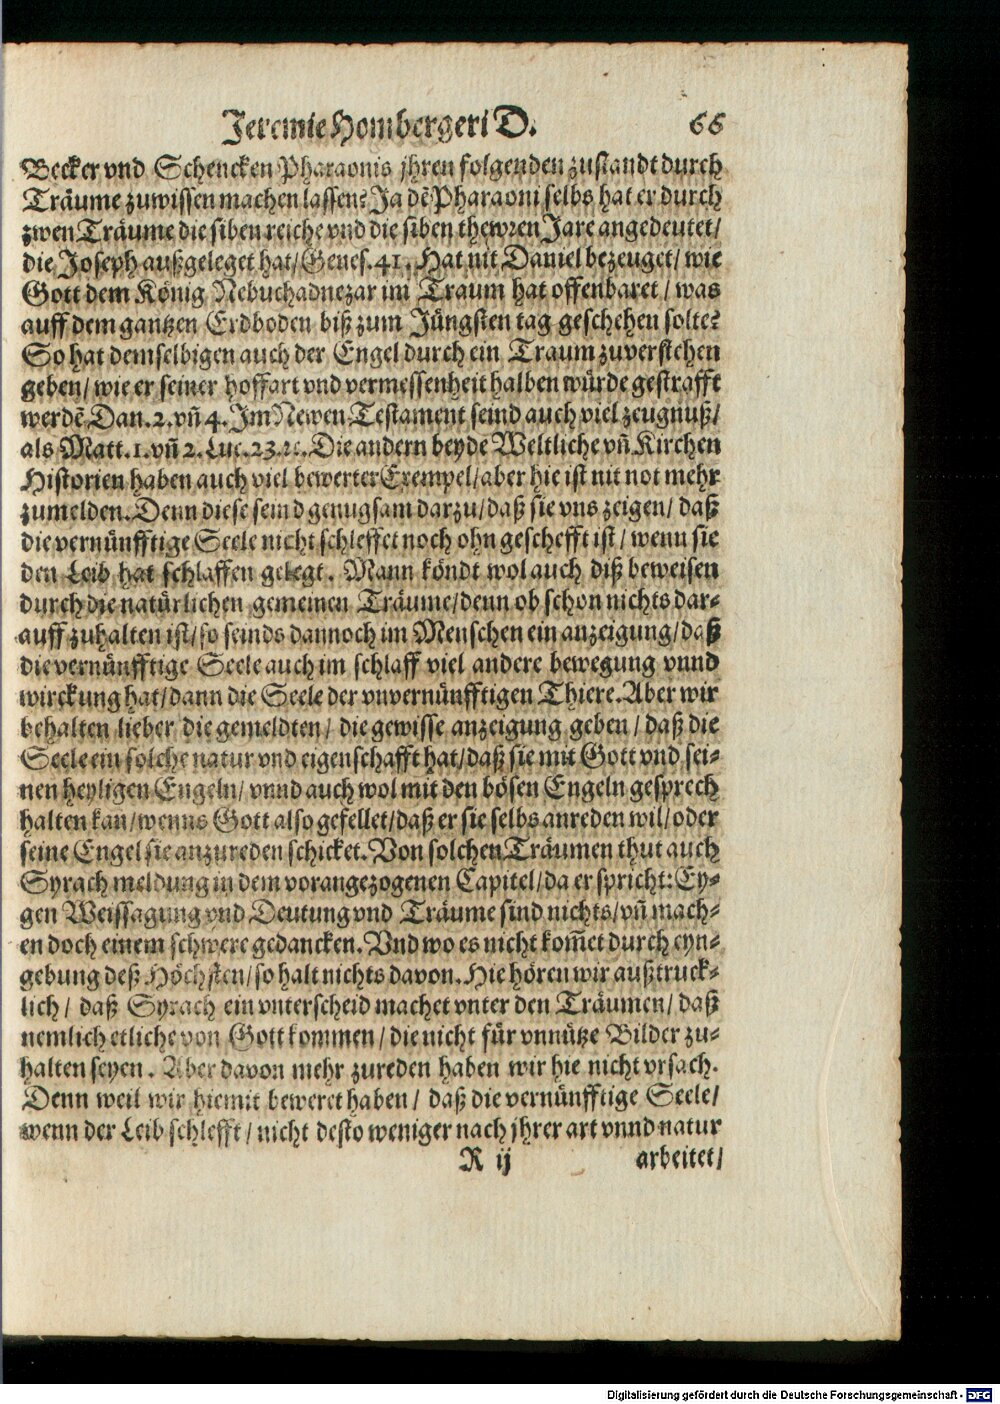 Jeremie Hombergeri D. 66
Becker vnd Schencken Pharaonis jhren folgenden zustandt durch
Träume zuwissen machen lassen? Ja dẽ Pharaoni selbs hat er durch
zwen Träume die siben reiche vnd die siben thewren Jare angedeutet/
die Joseph außgeleget hat/ Genes. 41. Hat nit Daniel bezeuget/ wie
Gott dem König Nebuchadnezar im Traum hat offenbaret/ was
auff dem gantzen Erdboden biß zum Jüngsten tag geschehen solte?
So hat demselbigen auch der Engel durch ein Traum zuverstehen
geben/ wie er seiner hoffart vnd vermessenheit halben würde gestrafft
werdẽ Dan. 2. vñ 4. Im Newen Testament seind auch viel zeugnuß/
als Matt. 1. vñ 2. Luc. 23. ꝛc. Die andern beyde Weltliche vñ Kirchen
Historien haben auch viel bewerter Exempel/ aber hie ist nit not mehr
zumelden. Denn diese seind genugsam darzu/ daß sie vns zeigen/ daß
die vernünfftige Seele nicht schleffet noch ohn geschefft ist/ wenn sie
den Leib hat schlaffen gelegt. Mann köndt wol auch diß beweisen
durch die natürlichen gemeinen Träume/ denn ob schon nichts dar-
auff zuhalten ist/ so seinds dannoch im Menschen ein anzeigung/ daß
die vernünfftige Seele auch im schlaff viel andere bewegung vnnd
wirckung hat/ dann die Seele der vnvernünfftigen Thiere. Aber wir
behalten lieber die gemeldten/ die gewisse anzeigung geben/ daß die
Seele ein solche natur vnd eigenschafft hat/ daß sie mit Gott vnd sei-
nen heyligen Engeln/ vnnd auch wol mit den bösen Engeln gesprech
halten kañ/ wenns Gott also gefellet/ daß er sie selbs anreden wil/ oder
seine Engel sie anzureden schicket. Von solchen Träumen thut auch
Syrach meldung in dem vorangezogenen Capitel/ da er spricht: Ey-
gen Weissagung vnd Deutung vnd Träume sind nichts/ vñ mach-
en doch einem schwere gedancken. Vnd wo es nicht kom̃et durch eyn-
gebung deß Höchsten/ so halt nichts davon. Hie hören wir außtruck-
lich/ daß Syrach ein vnterscheid machet vnter den Träumen/ daß
nemlich etliche von Gott kommen/ die nicht für vnnütze Bilder zu-
halten seyen. Aber davon mehr zureden haben wir hie nicht vrsach.
Denn weil wir hiemit beweret haben/ daß die vernünfftige Seele/
wenn der Leib schlefft/ nicht desto weniger nach jhrer art vnnd natur
R ij arbeitet/
Digitalisierung gefördert durch die Deutsche Forschungsgemeinschaft - DFG